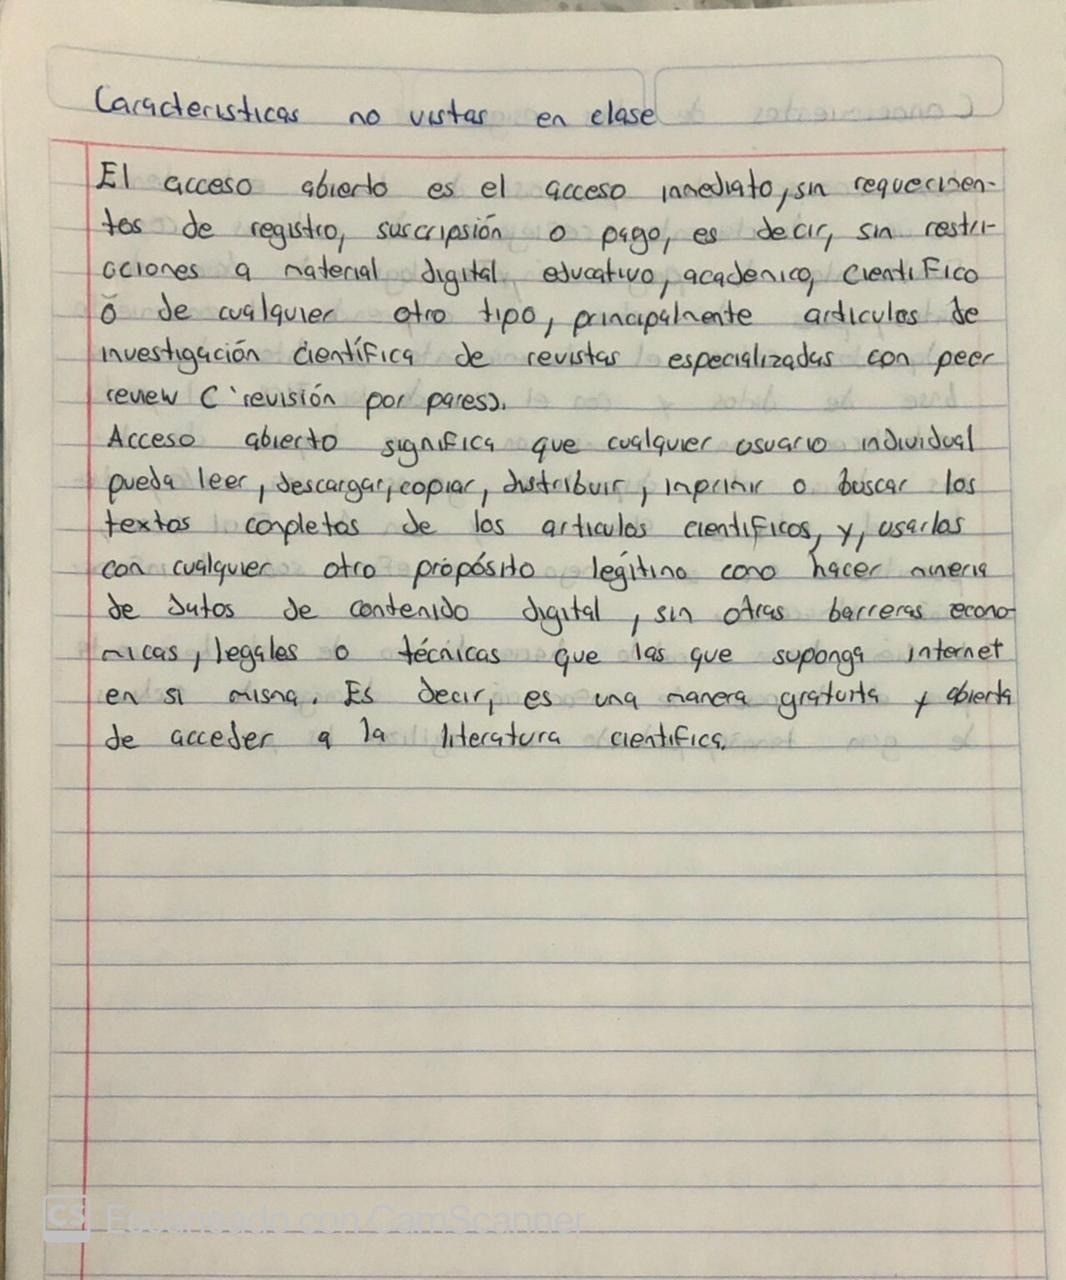 Caracteristicas no vistas en clase
El acceso abierto es el acceso inmediato, sin requerimen-
tos de registro, suscripsión o pago, es decir, sin restri-
cciones a material digital educativo, academico, cientifico
o de cualquier otro tipo, principalmente articulos de
investigación científica de revistas especializadas con peer
review ( 'revisión por pares).
Acceso abierto significa que cualquier usuario individual
pueda leer, descargar, copiar, distribuir, imprimir o buscar los
textos completos de los articulos científicos, y, usarlos
con cualquier otro propósito legítimo como hacer mineria
de datos de contenido digital, sin otras barreras econo-
micas, legales o técnicas que las que suponga internet
en si misma. Es decir, es una manera gratuita y abierta
de acceder a la literatura cientifica.
CS Escaneado con CamScanner